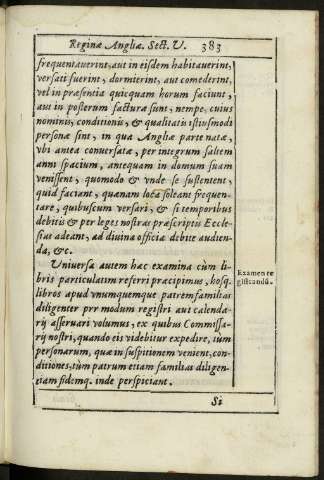 Reginæ Angliæ. Sect. V. 383
frequentaverint, aut in eisdem habitaverint,
versati fuerint, dormierint, aut comederint,
vel in præsentia quicquam horum faciunt,
aut in posterum factura sunt, nempe, cuius
nominis, conditionis, & qualitatis istiusmodi
personæ sint, in qua Angliæ parte natæ,
vbi antea conversatæ, per integrum saltem
anni spacium, antequam in domum suam
venissent, quomodo & vnde se sustentent,
quid faciant, quænam loca soleant frequen-
tare, quibuscum versari, & si temporibus
debitis & per leges nostras præscriptis Eccle-
siæ adeant, ad divina officia debite audien-
da, &c.
Universa autem hæc examina cùm li-
bris particulatim referri præcipimus, hosq;
libros apud vnumquemque patremfamilias
diligenter per modum registri aut calenda-
rij asseruari volumus, ex quibus Commissa-
rij nostri, quando eis videbitur expedire, tùm
personarum, quæ in suspitionem venient, con-
ditiones, tùm patrum etiam familias diligen-
tiam fidemq. inde perspiciant.
Examen re
gistrandū.
Si